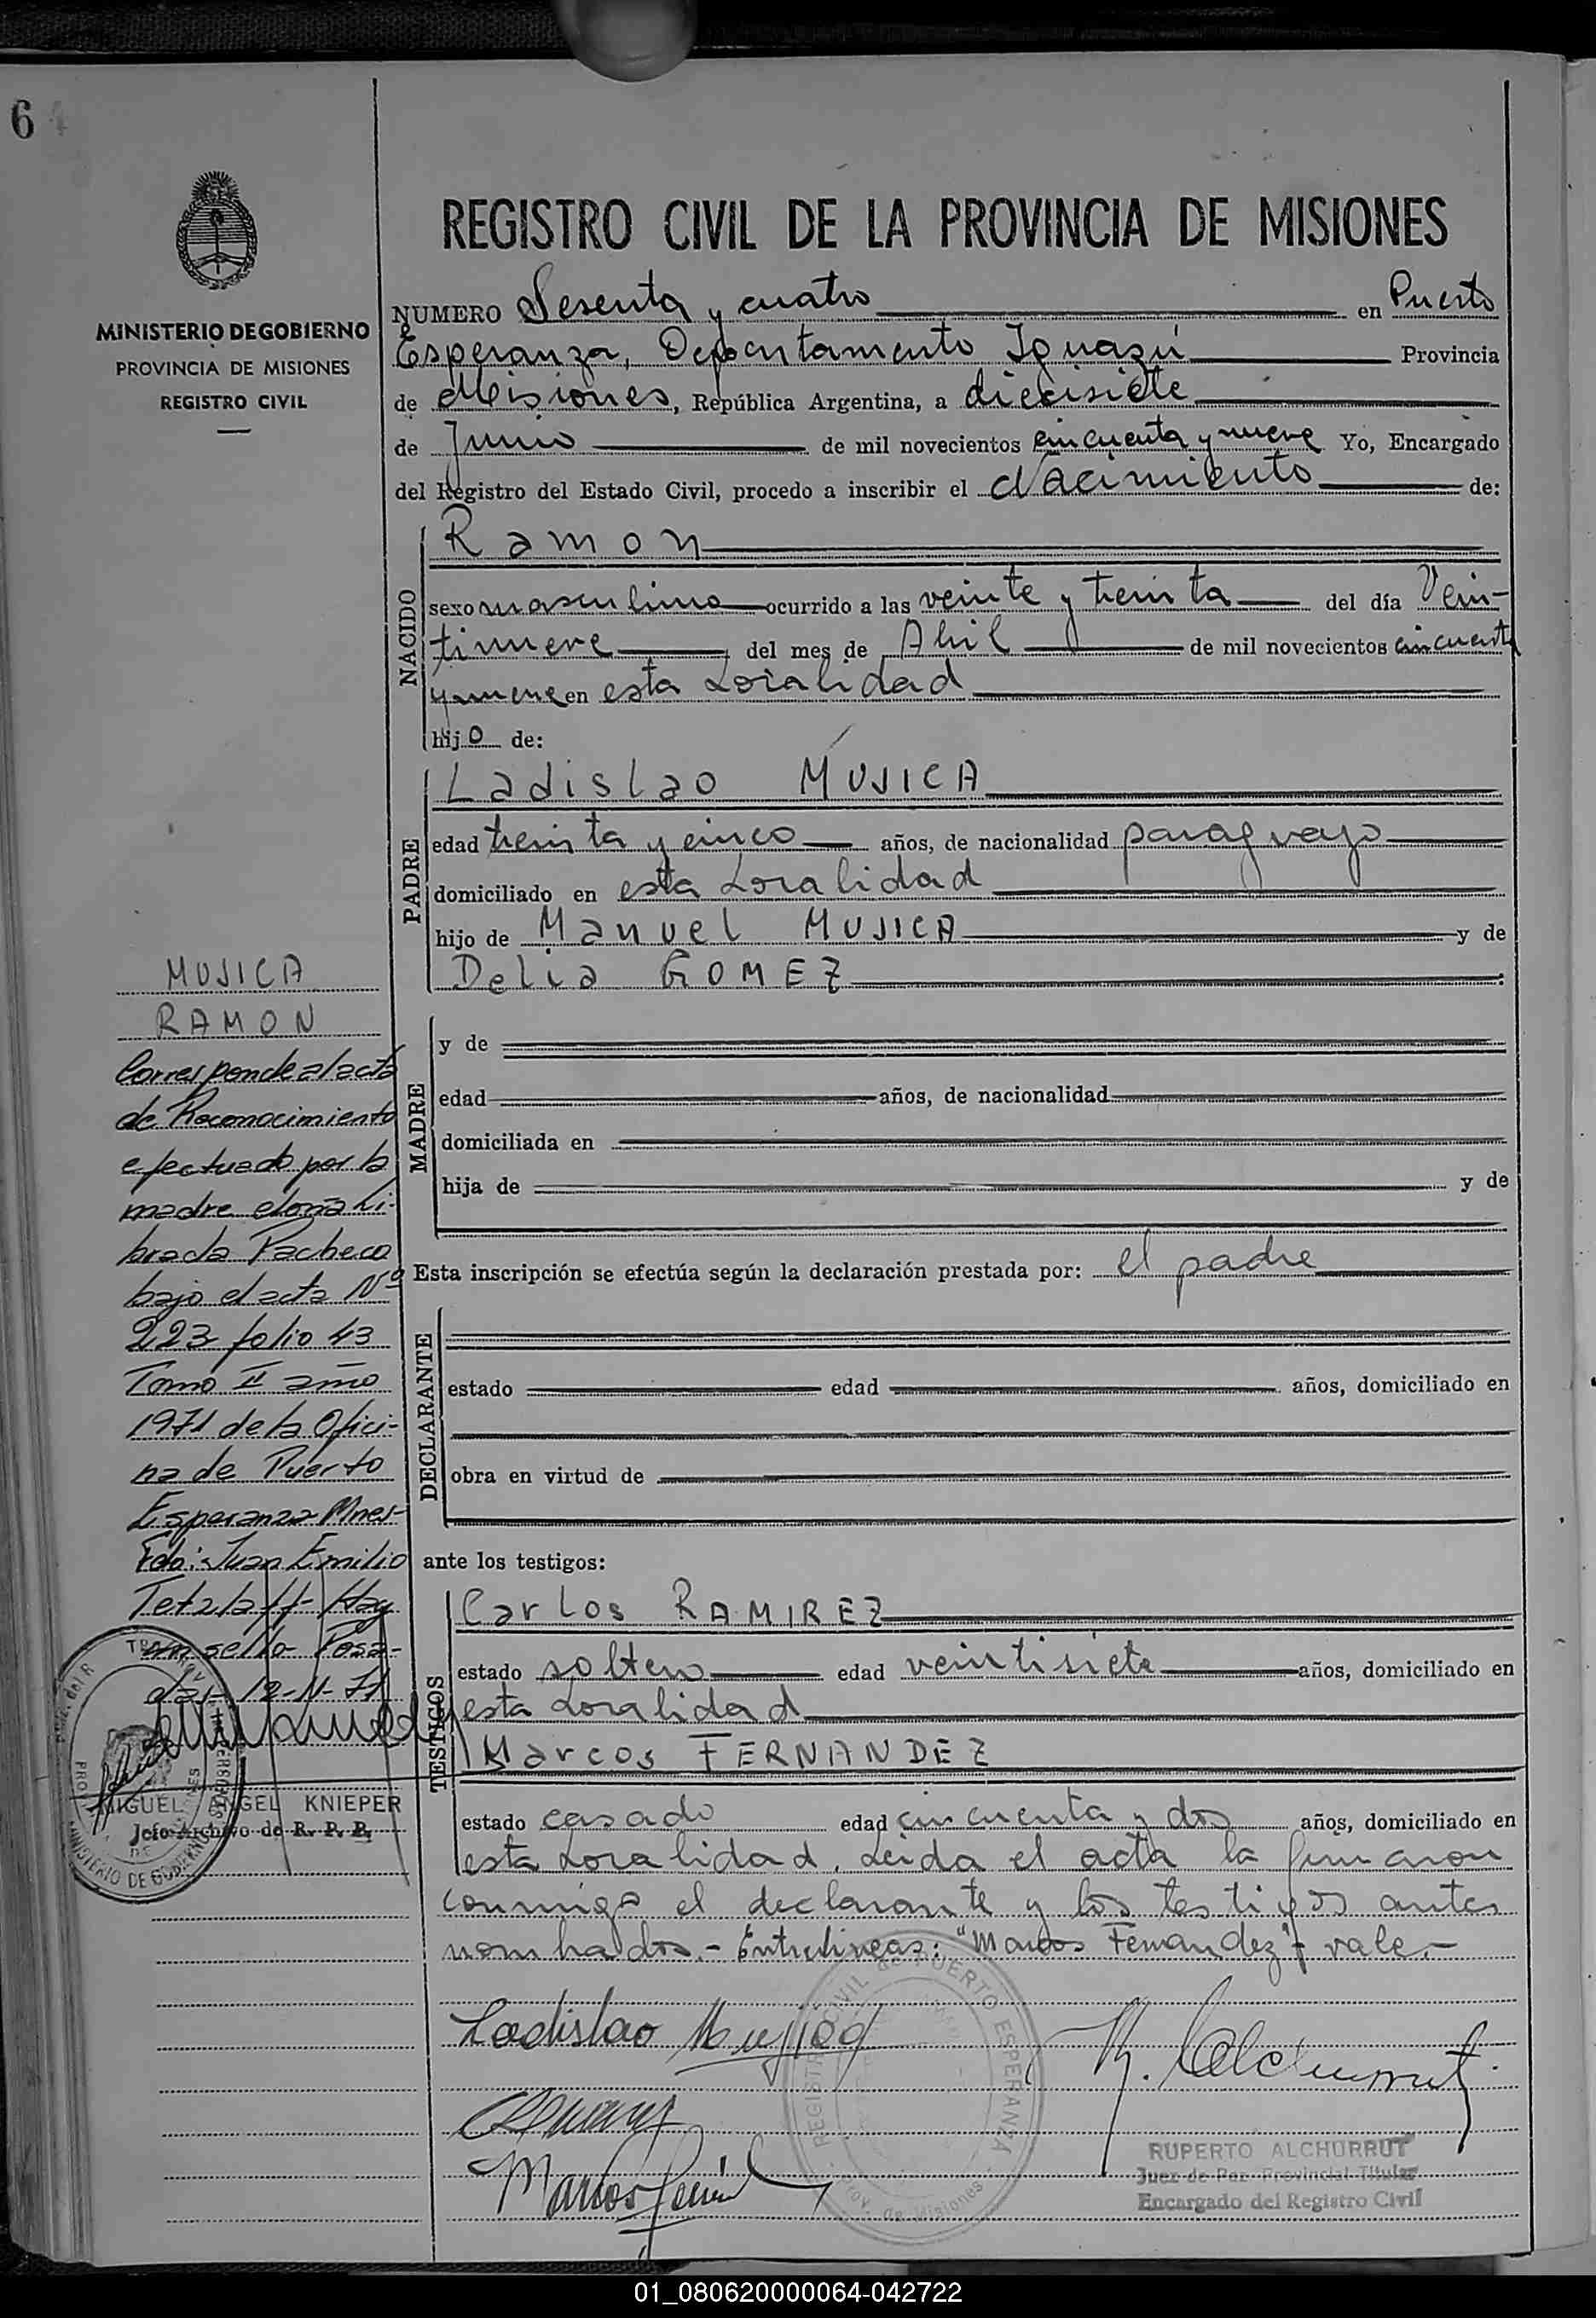 64
REGISTRO CIVIL DE LA PROVINCIA DE MISIONES
MINISTERIO DE GOBIERNO
PROVINCIA DE MISIONES
REGISTRO CIVIL
NUMERO Sesenta y cuatro en Puerto
Esperanza, Departamento Iguazú Provincia
de Misiones, República Argentina, a diecisiete
de Junio de mil novecientos cincuenta y nueve Yo, Encargado
del Registro del Estado Civil, procedo a inscribir el Nacimiento de:
NACIDO
Ramon
sexo masculino ocurrido a las veinte y treinta del día Vein-
tinueve del mes de Abril de mil novecientos cincuenta
y nueve en esta Localidad
hijo de:
PADRE
Ladislao MUJICA
edad treinta y cinco años, de nacionalidad paraguayo
domiciliado en esta Localidad
hijo de Manuel MUJICA y de
Delia GOMEZ
MADRE
y de
edad años, de nacionalidad
domiciliada en
hija de y de
Esta inscripción se efectúa según la declaración prestada por: el padre
DECLARANTE
estado edad años, domiciliado en
obra en virtud de
ante los testigos:
TESTIGOS
Carlos RAMIREZ
estado soltero edad veintisiete años, domiciliado en
esta Localidad
Marcos FERNANDEZ
estado casado edad cincuenta y dos años, domiciliado en
esta Localidad. Leida el acta la firmaron
conmigo el declarante y los testigos antes
nombrados.- Entrelineas: "Marcos Fernandez"- vale.-
Ladislao Mujica
RUPERTO ALCHURRUT
Juez de Paz Provincial Titular
Encargado del Registro Civil
REGISTRO CIVIL de PUERTO ESPERANZA
Prov. de Misiones
MUJICA
RAMON
Corresponde al acta
de Reconocimiento
efectuado por la
madre doña Li-
brada Pacheco
bajo el acta Nº
223 folio 43
Tomo II año
1971 de la Ofici-
na de Puerto
Esperanza Mnes-
Fdo: Juan Emilio
Tetzlaff- Hay
un sello- Posa-
das, 12-11-71
MIGUEL ANGEL KNIEPER
Jefe Archivo de R. P. P.
MINISTERIO DE GOBIERNO
01_080620000064-042722